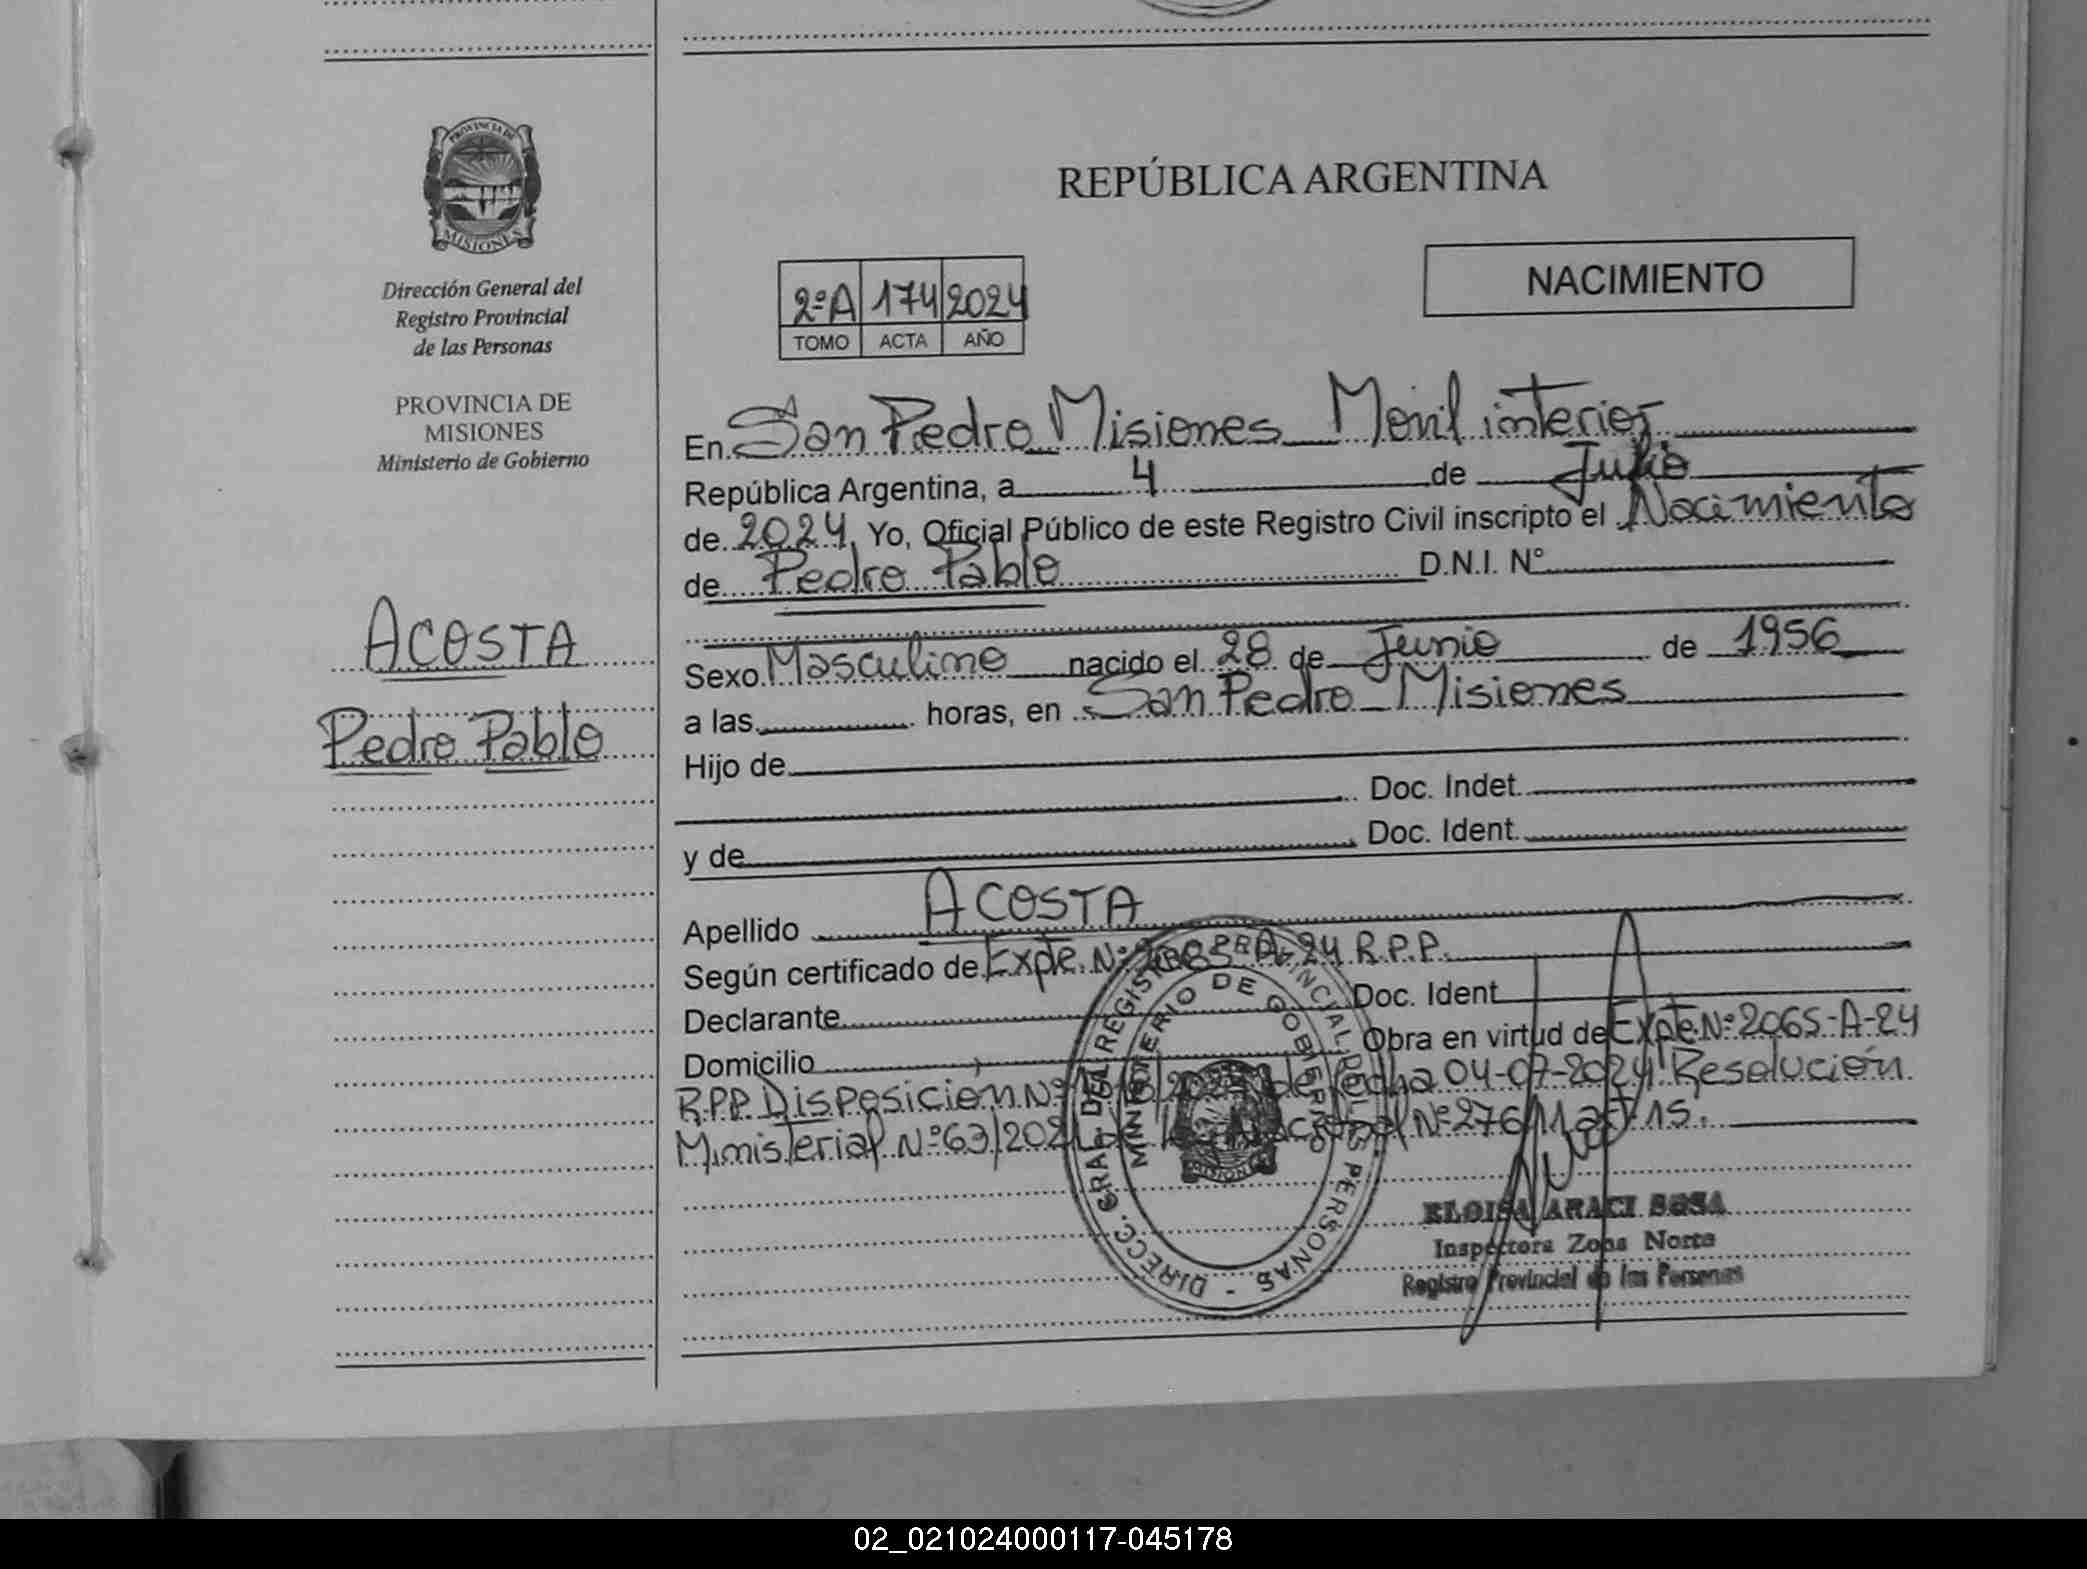 PROVINCIA DE
MISIONES
Dirección General del
Registro Provincial
de las Personas
PROVINCIA DE
MISIONES
Ministerio de Gobierno
ACOSTA
Pedro Pablo
REPÚBLICA ARGENTINA
2ºA 174 2024
TOMO ACTA AÑO
NACIMIENTO
En San Pedro Misiones Movil interior
República Argentina, a 4 de Julio
de 2024 Yo, Oficial Público de este Registro Civil inscripto el Nacimiento
de Pedro Pablo D.N.I. N°
Sexo Masculino nacido el 28 de Junio de 1956
a las horas, en San Pedro Misiones
Hijo de
Doc. Indet.
y de Doc. Ident.
Apellido ACOSTA
Según certificado de Expte. Nº A-24 R.P.P.
Declarante Doc. Ident
Domicilio Obra en virtud de Expte Nº 2065-A-24
R.P.P. Disposicion Nº de fecha 04-07-2024 Resolución
Ministerial Nº63/202 Nº276 15.
DIRECC. GRAL. DEL REGISTRO PROVINCIAL DE LAS PERSONAS -
MINISTERIO DE GOBIERNO
MISIONES
ELOISA ARACI SOSA
Inspectora Zona Norte
Registro Provincial de las Personas
02_021024000117-045178